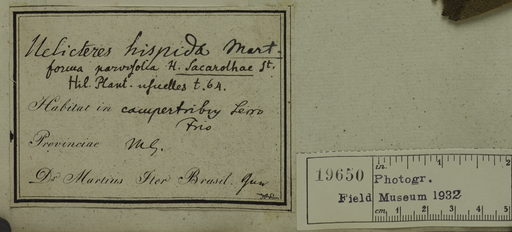 Helicteres hispida Mart.
forma parvifolia H. Sacarolhae St.
Hil. Plant. usuelles t. 64.
Habitat in campestribus Serro
Frio
Provinciae M.G.
Dr. Martius Iter Brasil.
19650
in.
1
2
Photogr.
Field Museum 1932
cm.
1
2
3
4
5